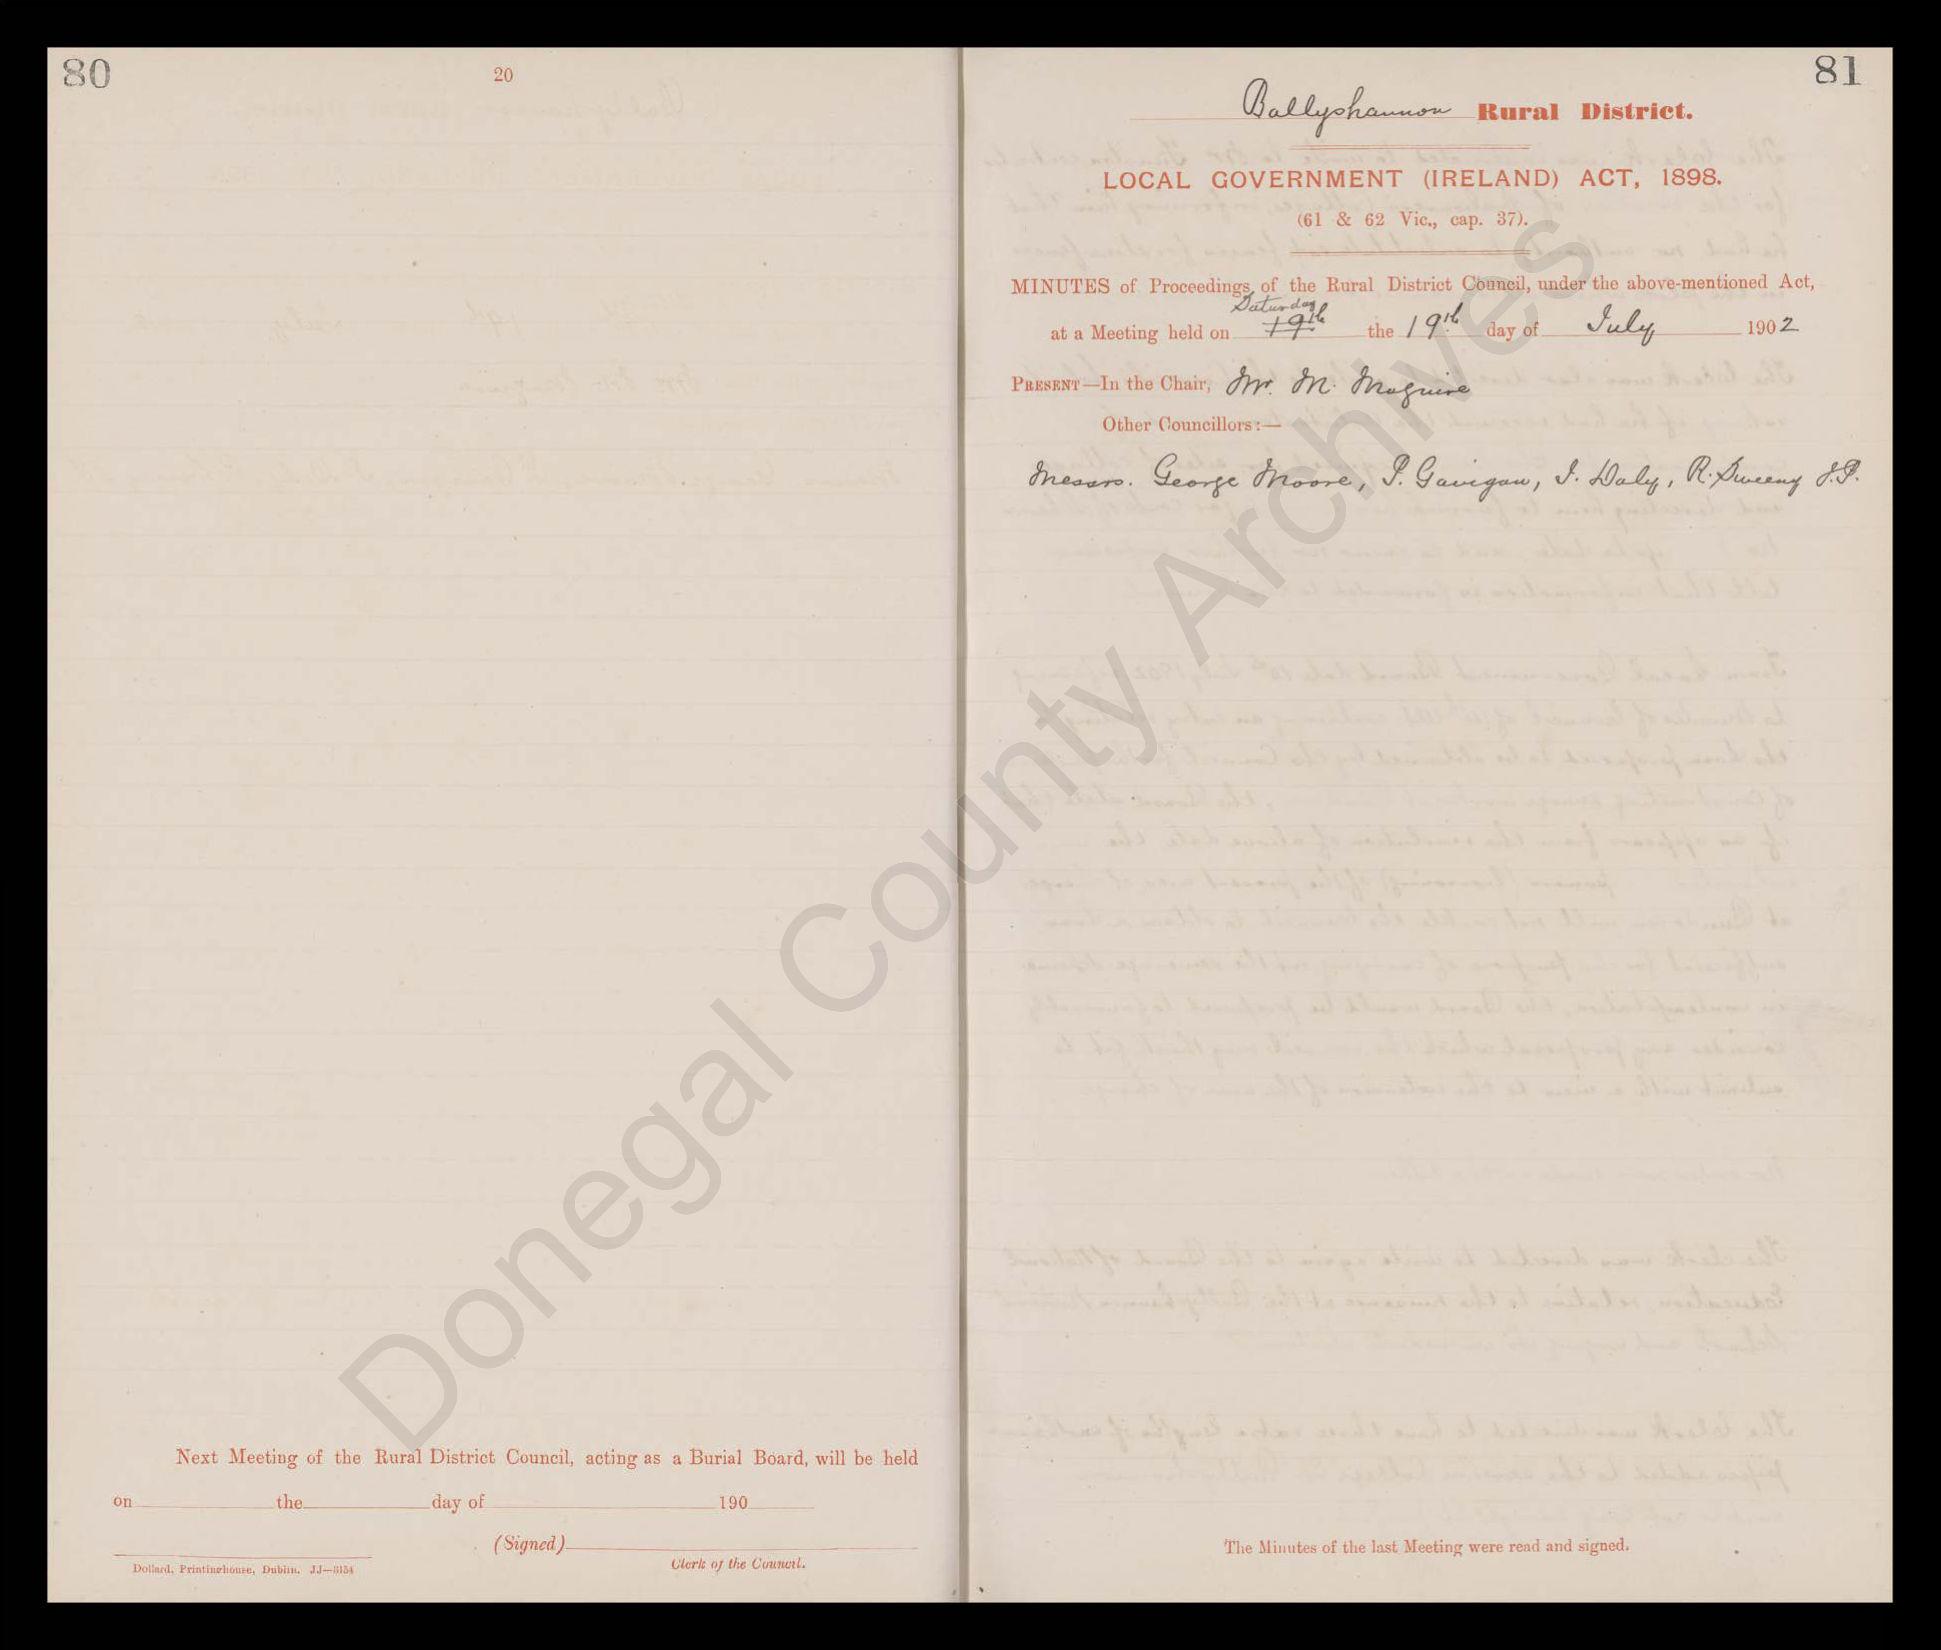 80
20
Next Meeting of the Rural District Council, acting as a Burial Board, will be held
on the day of 190
(Signed)
Clerk of the Council.
Dollard, Printinghouse, Dublin. JJ—3154
81
Ballyshannon Rural District.
LOCAL GOVERNMENT (IRELAND) ACT, 1898.
(61 & 62 Vic., cap. 37).
MINUTES of Proceedings of the Rural District Council, under the above-mentioned Act,
Saturday
at a Meeting held on 19th the 19th day of July 1902
PRESENT—In the Chair, Mr. M. Maguire
Other Councillors:—
Messrs. George Moore, P. Gavigan, J. Daly, R. Sweeny J.P.
The Minutes of the last Meeting were read and signed.
Donegal County Archives